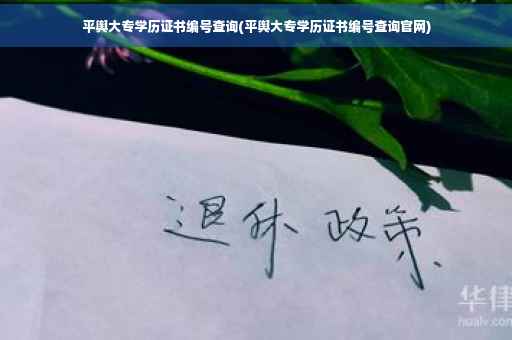 平舆大专学历证书编号查询(平舆大专学历证书编号查询官网)
退休 政策
华律
hualv.com